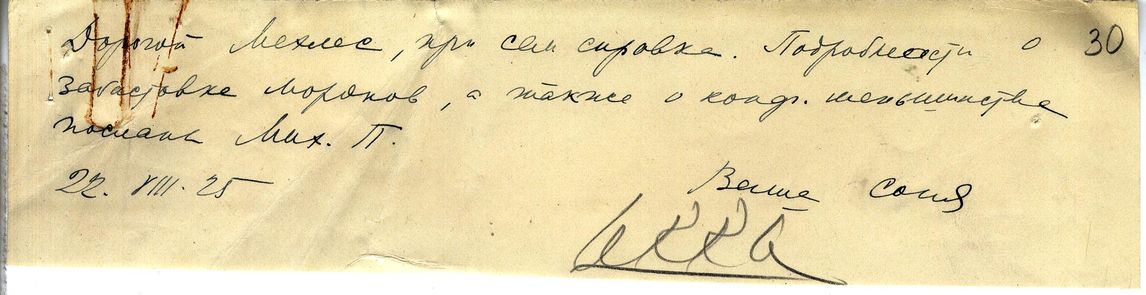 30
Дорогой Мехлес, при сем справка. Подробности о
забастовке моряков, а также о конф. меньшинства
посланы Мих. П.
22. VIII. 25
Ваша Соня
ИККИ